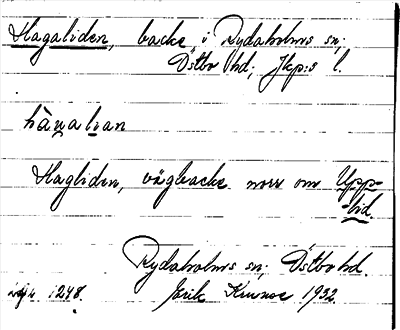 Hagaliden, backe i Rydaholms sn;
Östbo hd; Jkp:s l.
hàgalian
Hagliden, vägbacke norr om Upp-
bid.
Rydaholms sn; Östbo hd.
1248. Erik 1932.